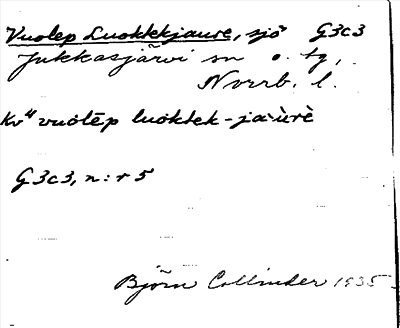 Vuolep Luoktekjaure, sjö G3c3
Jukkasjärvi sn o. tg,
Norrb. l.
Kv" vuolēp luoktek-jaùrè
G3c3, n:r 5
Björn Collinder 1935